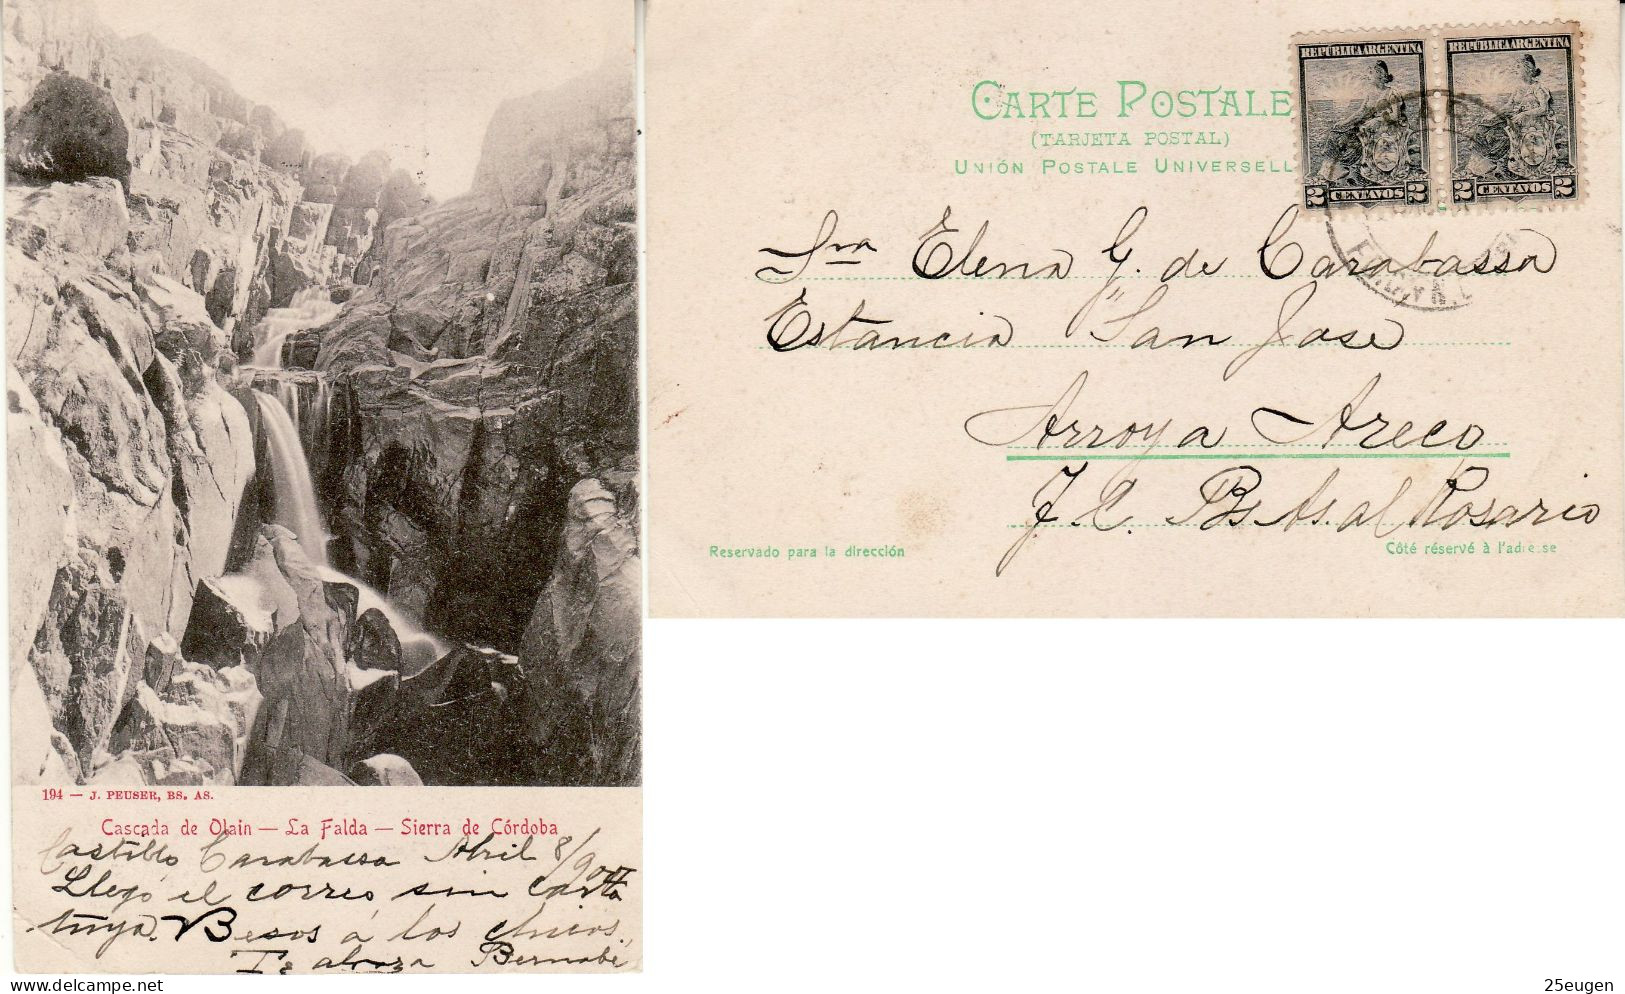 194 — J. PEUSER, BS. AS.
Cascada de Olain — La Falda — Sierra de Córdoba
Castillo Carabassa Abril 8/90
Llegó el correo sin carta
tuya. Besos á los chicos.
Te abraza Bernabé
CARTE POSTALE
(TARJETA POSTAL)
UNIÓN POSTALE UNIVERSELL
REPÚBLICA ARGENTINA
2 CENTAVOS 2
REPÚBLICA ARGENTINA
2 CENTAVOS 2
Sra Elena G. de Carabassa
Estancia "San Jose
Arroyo Areco
F. C. Bs. As. al Rosario
Reservado para la dirección
Côté réservé à l'adresse
25eugen
delcampe.net